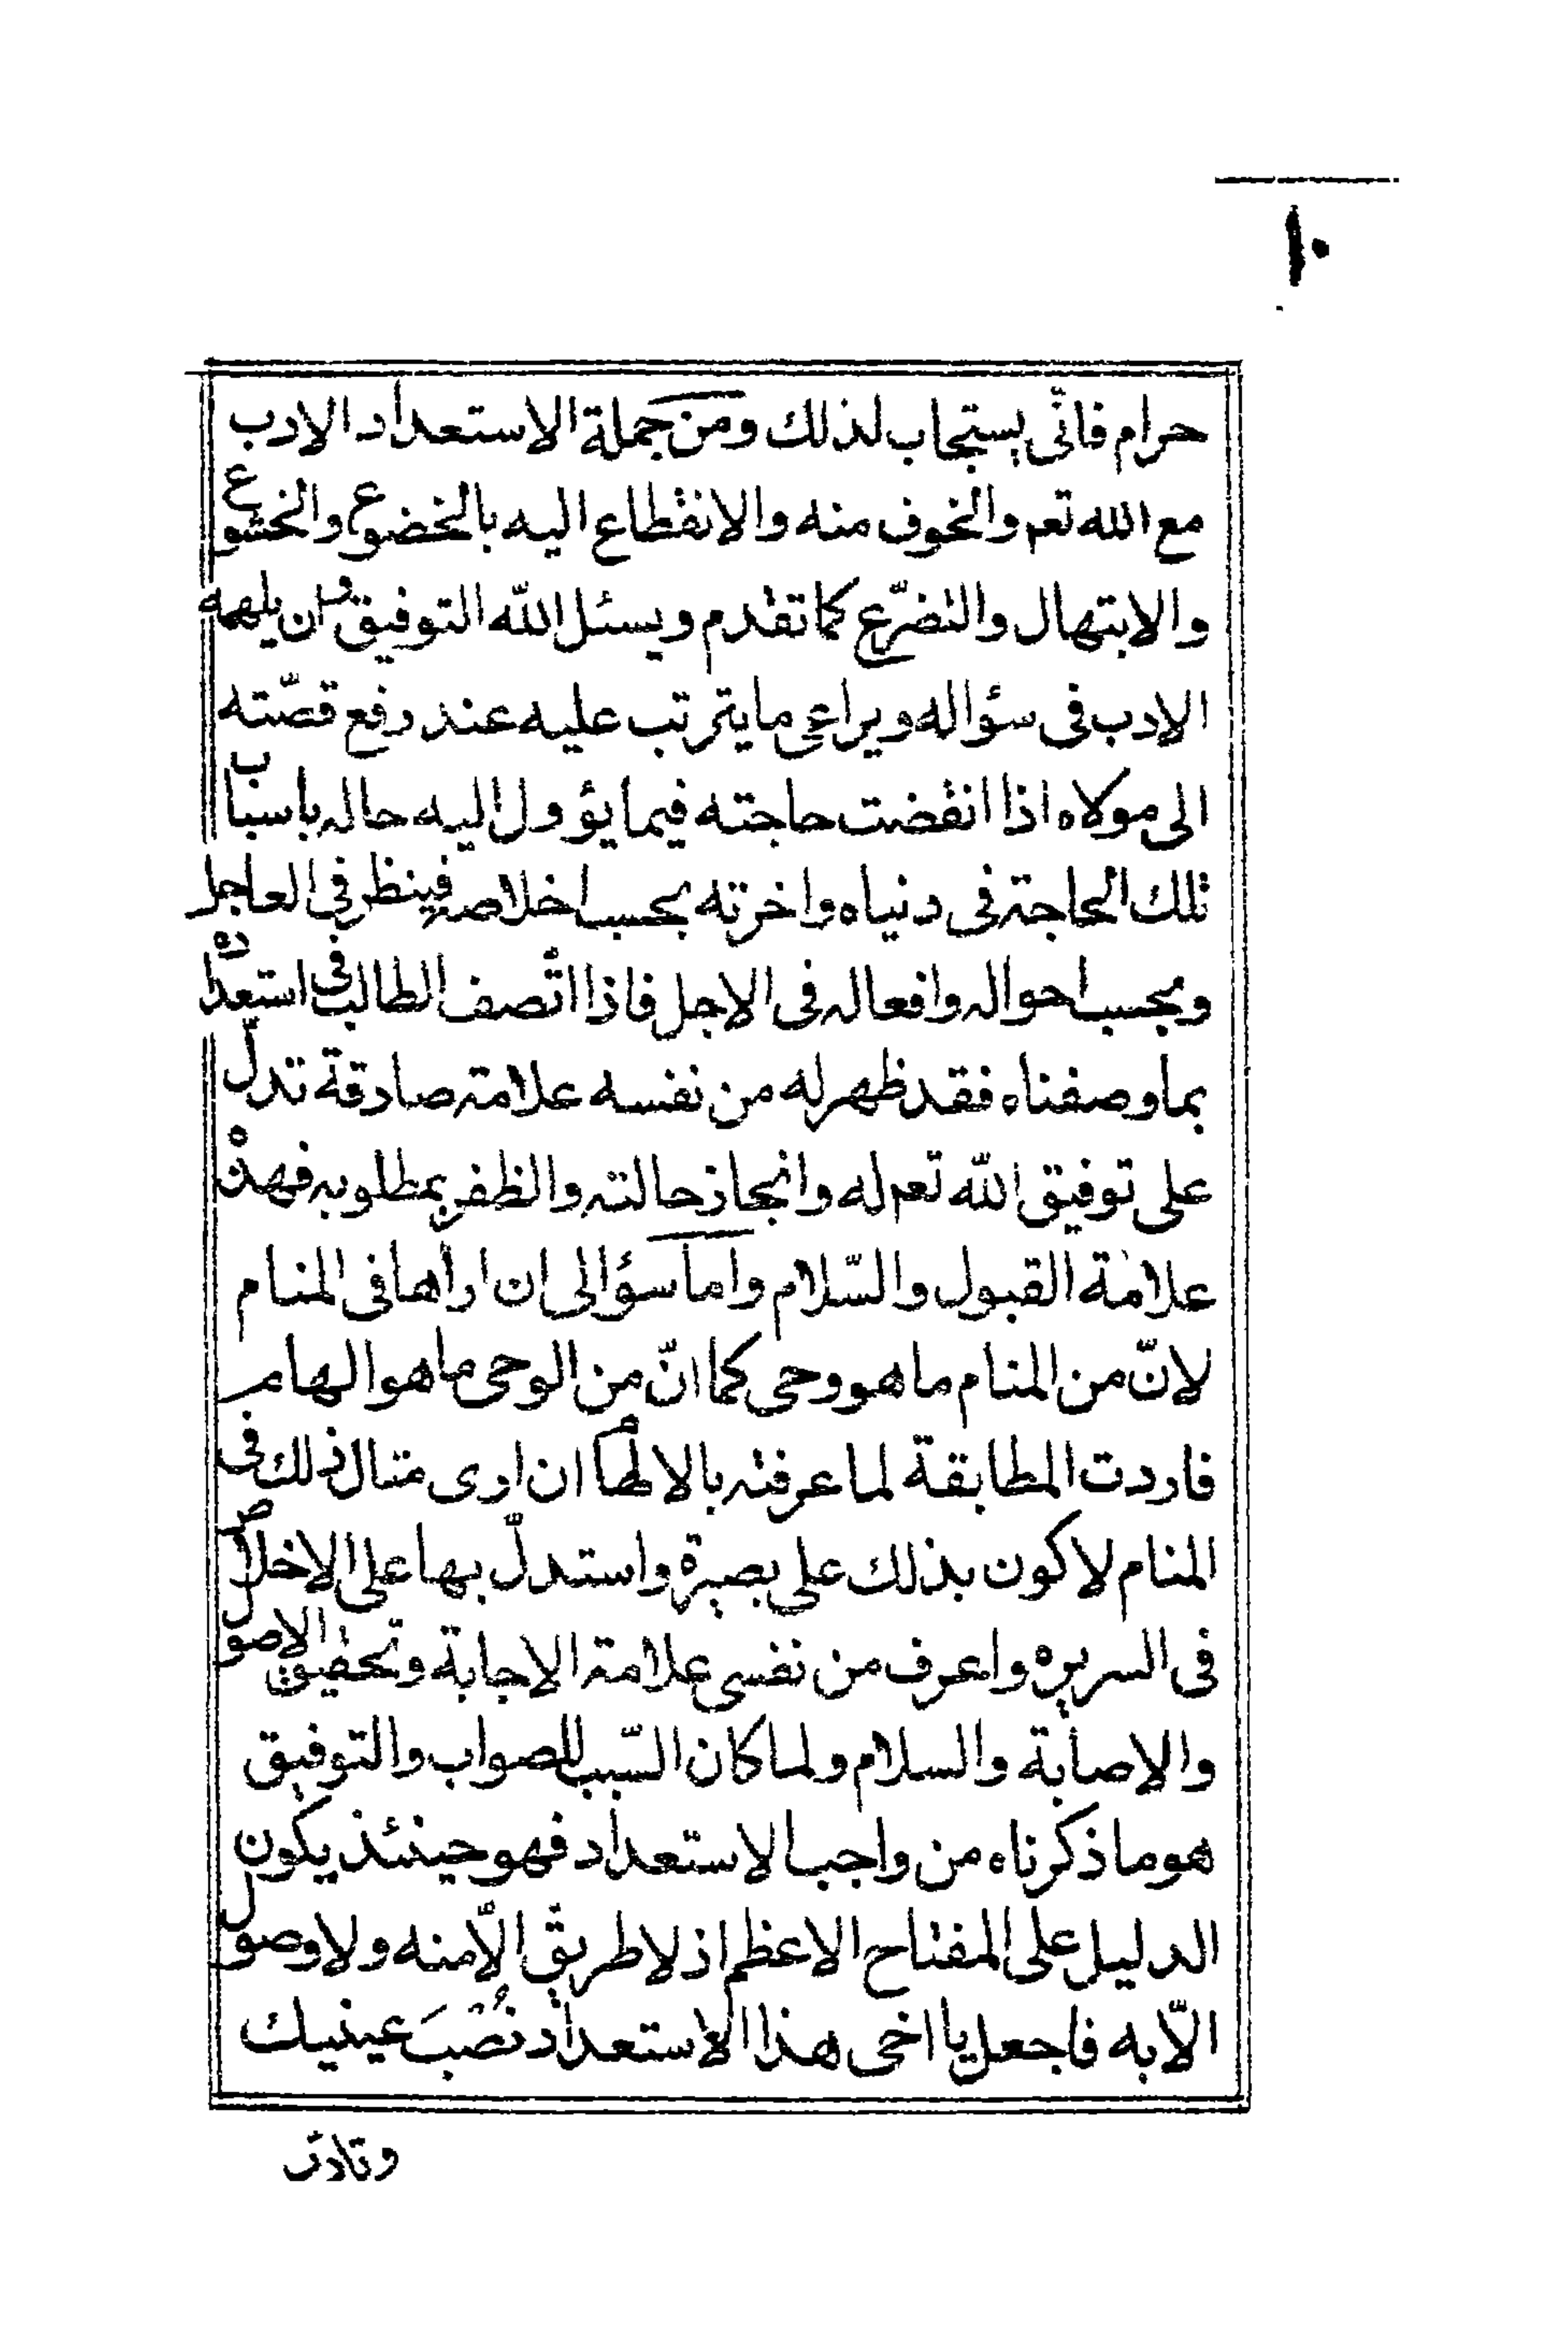 ١٠
حرام فانّى يستجاب لذلك ومن جملة الاستعداد الادب
مع الله تعم والخوف منه والانقطاع اليه بالخضوع والخشوع
والابتهال والتضرّع كما تقدم ويسئل الله التوفيق وان يلهمه
الادب فى سؤاله ويراعى ما يترتب عليه عند رفع قصّته
الى مولاه اذا انقضت حاجته فيما يؤول اليه حاله باسباب
تلك الحاجة فى دنياه واخرته بحسب اخلاصه فينظر فى العاجل
وبحسب احواله وافعاله فى الاجل فاذا اتّصف الطالب فى استعداده
بما وصفناه فقد ظهر له من نفسه علامة صادقة تدلّ
على توفيق الله تعم له وانجاز حالته والظفر بمطلوبه فهذه
علامة القبول والسّلام واما سؤالى ان اراها فى المنام
لانّ من المنام ما هو وحى كما انّ من الوحى ما هو الهام
فاردت المطابقة لما عرفته بالالهام ان ارى مثال ذلك فى
المنام لاكون بذلك على بصيرة واستدلّ بها على الاخلاص
فى السريره واعرف من نفسى علامة الاجابة وتحقيق الاصول
والاصابة والسلام ولما كان السّبب للصواب والتوفيق
هو ما ذكرناه من واجب الاستعداد فهو حينئذ يكون
الدليل على المفتاح الاعظم اذ لا طريق الّا منه ولا وصول
الّا به فاجعل يا اخى هذا الاستعداد نُصْبَ عينيك